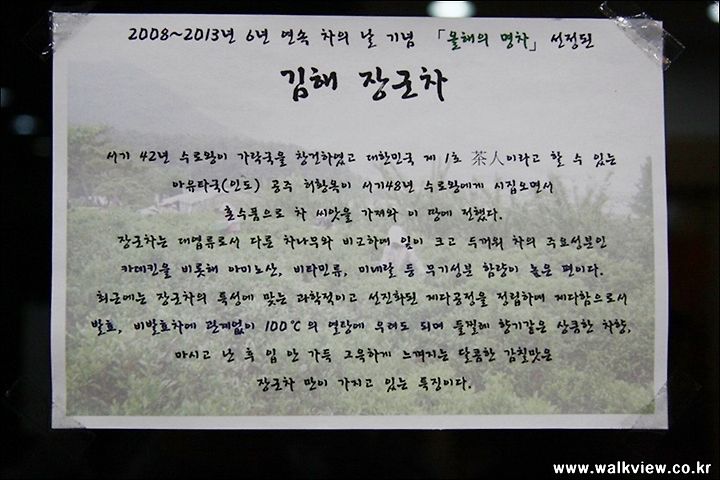 2008~2013년 6년 연속 차의 날 기념 「올해의 명차」 선정된
김해 장군차
서기 42년 수로왕이 가락국을 창건하였고 대한민국 제 1호 茶人이라고 할 수 있는
아유타국(인도) 공주 허황옥이 서기48년 수로왕에게 시집오면서
혼수품으로 차 씨앗을 가져와 이 땅에 전했다.
장군차는 대엽류로서 다른 차나무와 비교하여 잎이 크고 두꺼워 차의 주요성분인
카테킨을 비롯해 아미노산, 비타민류, 미네랄 등 무기성분 함량이 높은 편이다.
최근에는 장군차의 특성에 맞는 과학적이고 선진화된 제다공정을 정립하여 제다함으로서
발효, 비발효차에 관계없이 100℃의 열탕에 우려도 되며 들찔레 향기같은 상큼한 차향,
마시고 난 후 입 안 가득 그윽하게 느껴지는 달콤한 감칠맛은
장군차 만이 가지고 있는 특징이다.
www.walkview.co.kr